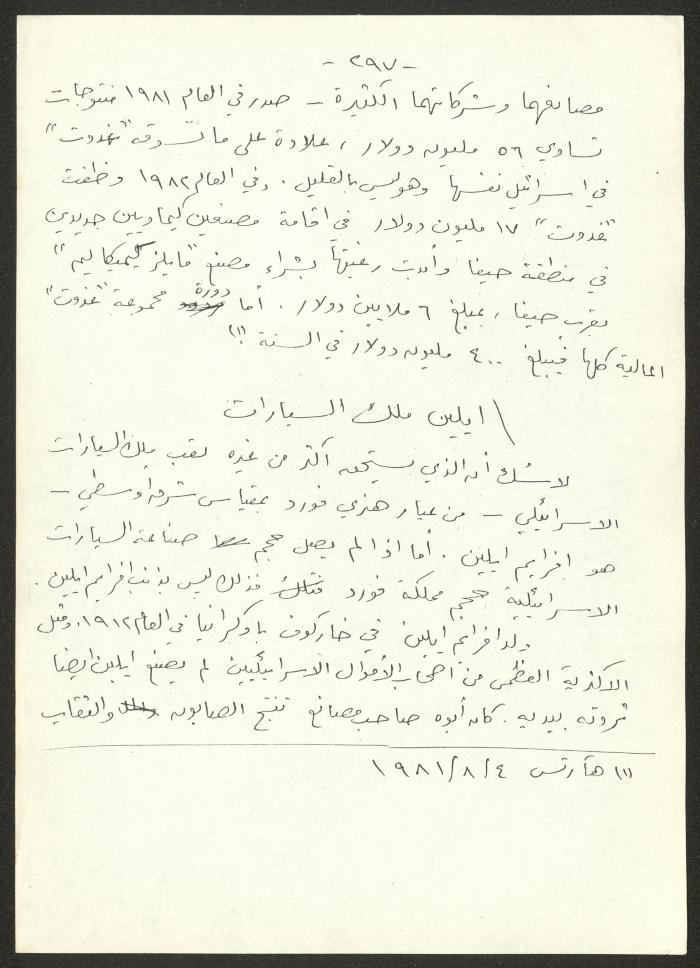 - ٢٩٧ -
مصانعهما وشركاتهما الكثيرة - صدر في العام ١٩٨١ منتوجات
تساوي ٥٦ مليون دولار ، علاوة على ما تسوقه "غدوت"
في اسرائيل نفسها وهو ليس بالقليل . وفي العام ١٩٨٢ وظفت
"غدوت" ١٧ مليون دولار في اقامة مصنعين كيماويين جديدين
في منطقة حيفا وأبدت رغبتها بشراء مصنع "مايلز كيميكاليم"
بقرب حيفا ، بمبلغ ٦ ملايين دولار . أما دورة مجموعة "غدوت"
المالية كلها فيبلغ ٤٠٠ مليون دولار في السنة (١)
ايلين ملك السيارات
لا شك أن الذي يستحق أكثر من غيره لقب ملك السيارات
الاسرائيلي - من عيار هنري فورد بمقياس شرق اوسطي -
هو افرايم ايلين . أما اذا لم يصل حجم صناعة السيارات
الاسرائيلية حجم مملكة فورد فذلك ليس بذنب افرايم ايلين .
ولد افرايم ايلين في خاركوف باوكرانيا في العام ١٩١٢. ومثل
الاكثرية العظمى من أصحاب الأموال الاسرائيليين لم يصنع ايلين ايضا
ثروته بيديه . كان أبوه صاحب مصانع تنتج الصابون والثقاب
(١) هآرتس ٤/٨/١٩٨١